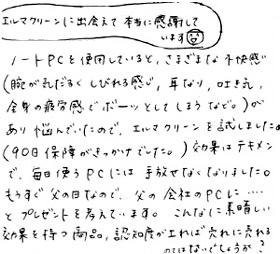 エルマクリーンに出会えて本当に感謝して
います
ノートPCを使用していると、さまざまな不快感
(腕がだるくしびれる感じ、耳なり、吐き気、
全身の疲労感でボーッとしてしまうなど。)が
あり悩んでいたので、エルマクリーンを試しました。
(90日保障がきっかけでした。)効果はテキメン
で、毎日使うPCには手放せなくなりました。
もうすぐ父の日なので、父の会社のPCに……
とプレゼントを考えています。こんなに素晴しい
効果を持つ商品、認知度が上れば売れに売れる
のではないでしょうか?